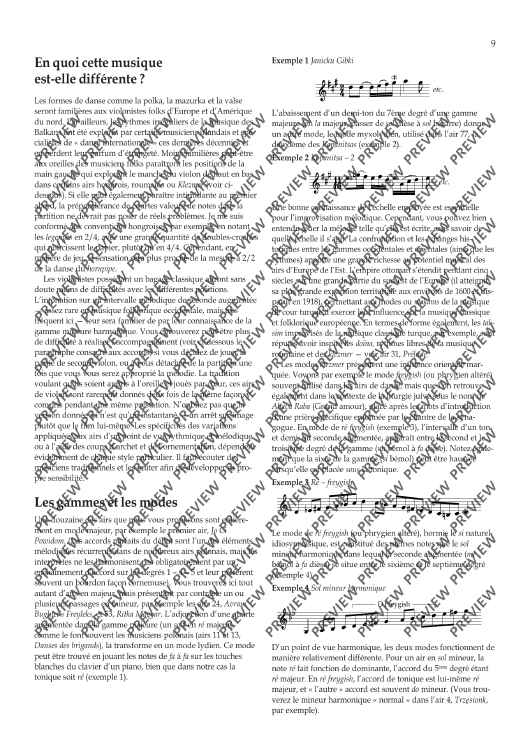 9
En quoi cette musique
est-elle différente ?
Les formes de danse comme la polka, la mazurka et la valse
seront familières aux violonistes folks d'Europe et d'Amérique
du nord. D'ailleurs, les rythmes irréguliers de la musique des
Balkans ont été exploités par certains musiciens irlandais et
de « dans internationales » ces dernières décennies et
leur parfum d'étrangeté. Moins familières peut-être
aux oreilles des musiciens folks paraîtront les positions de la
main gauche qui explorent le manche du violon de haut en bas
dans certains airs hongrois, roumains ou Klezmer (voir ci-
dessous). Si elle peut également paraître intimidante au premier
abord, la prépondérance de courtes valeurs de notes dans la
partition ne devrait pas poser de réels problèmes. Je me suis
conformé aux conventions hongroises, par exemple, en notant
les legényes en 2/4, avec une grande quantité de doubles-croches
qui noircissent le papier, plutôt qu'en 4/4. Cependant, en
matière de jeu, la sensation est plus proche de la mesure à 2/2
de la danse du hornpipe.
Les violonistes possédant un bagage classique auront sans
doute moins de difficultés avec les différentes positions.
L'intonation sur un intervalle mélodique de seconde augmentée
assez rare en musique folklorique occidentale, mais
fréquent ici — leur sera familier de par leur connaissance de la
gamme mineure harmonique. Vous éprouverez peut-être plus
de difficulté à réaliser l'accompagnement (voir ci-dessous le
paragraphe consacré aux accords) si vous décidez de jouer la
partie de second violon, ou à vous détacher de la partition une
fois que vous vous serez approprié la mélodie. La tradition
voulant qu'ils soient appris à l'oreille et joués par cœur, ces airs
de violon sont rarement donnés deux fois de la même façon,
comme pendant une même répétition. N'oubliez pas que la
version donnée ici n'est qu'un instantané, un arrêt sur image
plutôt que le film lui-même. Les spécificités des variations
appliquées aux airs d'un point de vue rythmique et mélodique,
ou à l'aide des coups d'archet et de l'ornementation, dépendent
évidemment de chaque style particulier. Il faut écouter des
musiciens traditionnels et les imiter afin de développer sa pro-
pre sensibilité.
Les gammes et les modes
Une douzaine des airs que nous vous proposons sont claire-
ment en mode majeur, par exemple le premier air, Jo
Les accords parfaits du début sont l'un des éléments
mélodiques récurrents dans de nombreux airs polonais, mais les
interprètes ne les harmonisent pas obligatoirement par un
enchaînement d'accord sur les degrés 1 – 4 – 5 et leur préfèrent
souvent un bourdon façon cornemuse. Vous trouverez ici tout
autant d'airs en majeur, mais présentant par contre un ou
plusieurs passages en mineur, par exemple les airs 24,
et 33, L'adjonction d'une quarte
augmentée dans la gamme majeure (un sol # en ré majeur),
comme le font souvent les musiciens polonais (airs 11 et 13,
Danses des brigands), la transforme en un mode lydien. Ce mode
peut être trouvé en jouant les notes de fa à fa sur les touches
blanches du clavier d'un piano, bien que dans notre cas la
tonique soit ré (exemple 1).
Exemple 1 Janicku Gibki
etc.
L'abaissement d'un demi-ton du 7ème degré d'une gamme
majeure (en la majeur, passer de sol dièse à sol bécarre) donne
un autre mode, le mode myxolydien, utilisé dans l'air 77,
deuxième des (exemple 2).
Exemple 2 – 2
etc.
Une bonne connaissance de l'échelle employée est essentielle
pour l'improvisation mélodique. Cependant, vous pouvez bien
entendu jouer la mélodie telle qu'elle est écrite, sans savoir de
quelle échelle il s'agit. La combinaison et les échanges his-
toriques entre les gammes occidentales et orientales (ainsi que les
rythmes) apporte une grande richesse au potentiel musical des
airs d'Europe de l'Est. L'empire ottoman s'étendit pendant cinq
siècles sur une grande partie du sud-est de l'Europe (il atteignit
sa plus grande expansion territoriale aux environs de 1600 et dis-
parut en 1918), permettant aux modes ou makams de la musique
de cour turque d'exercer leur influence sur la musique classique
et folklorique européenne. En termes de forme également, les
improvisés de la musique classique turque, par exemple, ont
répus servir inspiré les doina, rythmes libres de la musique
roumaine et de klezmer — voir air 31,
Les modes klezmer présentent une influence orientale mar-
quée. Voyons par exemple le mode freygish (ou phrygien altéré),
souvent utilisé dans les airs de danse, mais que l'on retrouve
également dans le contexte de la liturgie juive sous le nom de
Ahava Raba (Grand amour), titre après les mots d'introduction
d'une prière spécifique entonnée par le chantre de la syna-
gogue. En mode de ré freygish (exemple 3), l'intervalle d'un ton
et demi, de seconde augmentée, apparaît entre le second et le
troisième degré de la gamme (mi bémol à fa dièse). Notez égale-
ment que la sixte de la gamme (si bémol) peut être haussée
lorsqu'elle est placée sous la tonique.
Exemple 3 Ré – freygish
Le mode de ré freygish (ou phrygien altéré), hormis le si naturel
idiosyncrasique, est constitué des mêmes notes que le sol
mineur harmonique, dans lequel la seconde augmentée (mi
bémol à fa dièse) se situe entre le sixième et le septième degré
(exemple 4).
Exemple 4 Sol mineur harmonique
D freygish
D'un point de vue harmonique, les deux modes fonctionnent de
manière relativement différente. Pour un air en sol mineur, la
note ré fait fonction de dominante, l'accord du 5ème degré étant
ré majeur. En ré freygish, l'accord de tonique est lui-même ré
majeur, et « l'autre » accord est souvent do mineur. (Vous trou-
verez le mineur harmonique « normal » dans l'air 4, Trzesionk,
par exemple).